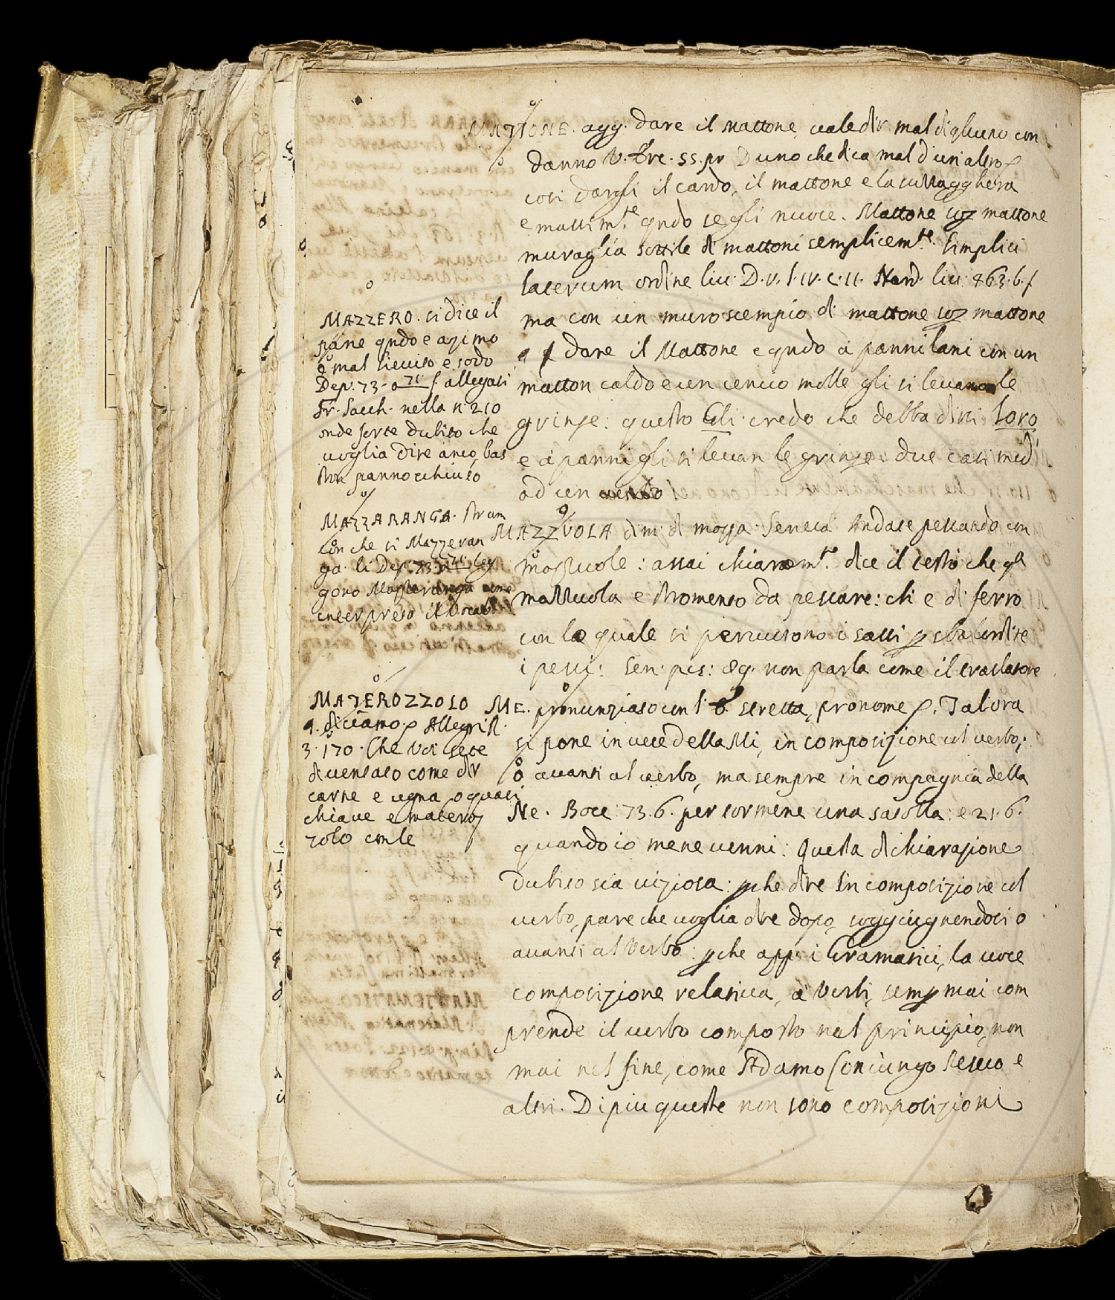 MATTONE. agg. dare il mattone, vale dir mal d'alcuno con
danno V. Erc. 55. pr D uno che dica mal d'un altro
così dargli il cardo, il mattone e la suzzacchera
e massimte qndo se gli nuoce. Mattone sop mattone
muraglia sottile di mattoni semplicemte. Simplici
laterum ordine liv. D. v. l. iv. c. 11. Nard. liv. 863. b. f
ma con un muro scempio di mattone sop mattone
q f Dare il Mattone e qndo a panni lani con un
matton caldo e un cencio molle gli si levano le
grinze: questo Gli credo che debba dirsi Loro
e a panni gli si levan le grinze. due casi med
ad un verbo
MAZZUOLA dim. di mazza. Seneca Andare pescando con
mazzuole: assai chiaramte dice il testo che qsta
mazzuola e stromento da pescare: cli e di ferro
con la quale si percuotono i sassi p sbalordire
i pesci: Sen. pis: 89. non parla come il traslatore
ME. pronunziato con l'e stretta, pronome p. Talora
si pone in vece della Mi, in composizione col verbo,
o avanti al verbo, ma sempre in compagnia della
Ne. Bocc. 73. 6. per tormene una satolla: e 21. 6.
quando io me ne venni: Questa dichiarazione
dubito sia viziosa: pche dire In composizione col
verbo, pare che voglia dire dopo, soggiugnendosi o
avanti al Verbo: pche app. i Gramatici, la voce
composizione relativa, a Verbi, semp mai com
prende il verbo composto nel principio, non
mai nel fine, come Adamo Coniungo Seseco e
altri. Di piu queste non sono composizioni
MAZZERO. si dice il
pane qndo e azimo
o mal lievito e sodo
Dep. 73. allegati
Fr. Sacch. nella n. 210
onde forse dubito che
voglia dire anco bas
ton pannocchiuto
MAZZARANGA. Strum
con che si Mazzeran
ga. li Dep. 73
gono Mazzeranga come
interpreto il Vocab
MATEROZZOLO
q. diciamo p Allegri R.
3. 170. Che voi sete
diventato come dir
carne e ugna, o quasi
chiave e materoz
zolo con le